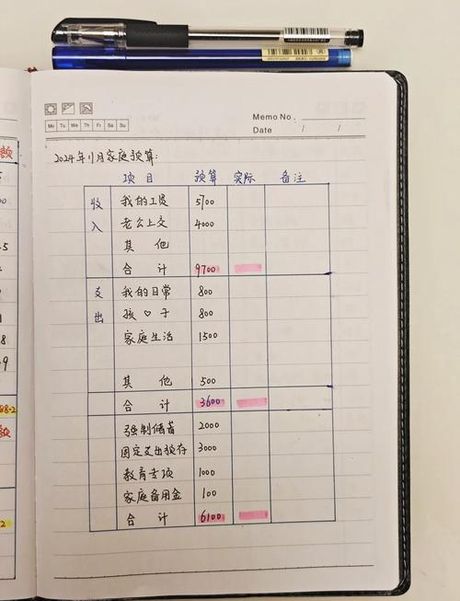 Memo No.
Mo Tu We Th Fr Sa Su
Date / /
2024年11月家庭预算:
项目 预算 实际 备注
收入 我的工资 5700
老公上交 4000
其他
合计 9700
支出 我的日常 800
孩♡子 800
家庭生活 1500
其他 500
合计 3600
强制储蓄 2000
固定支出预存 3000
教育专项 1000
家庭备用金 100
合计 6100